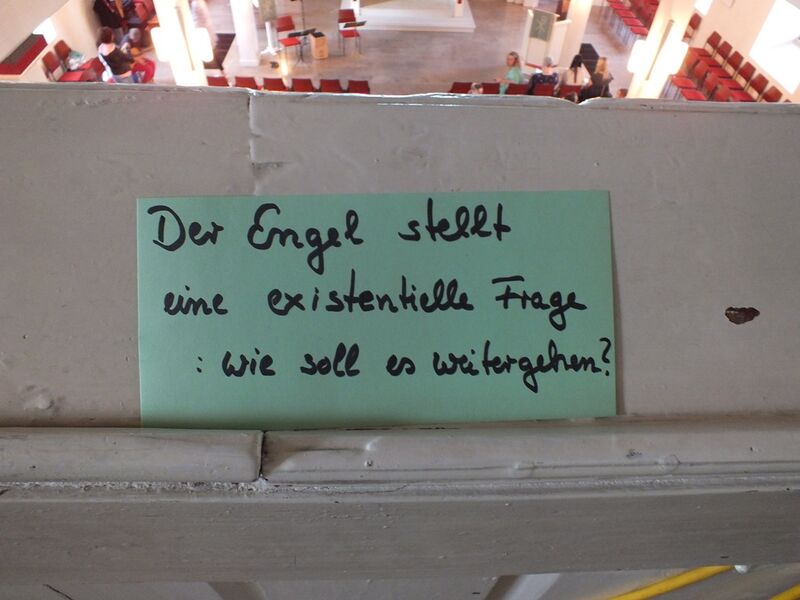 Der Engel stellt
eine existentielle Frage
: wie soll es weitergehen?